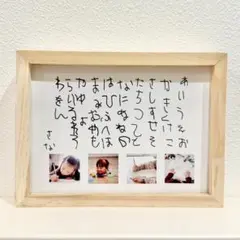 あいうえお
かきくけこ
さしすせそ
たちつてと
なにぬねの
はひふへほ
まみむめも
やゆよ
らりるれろ
わをん
さな